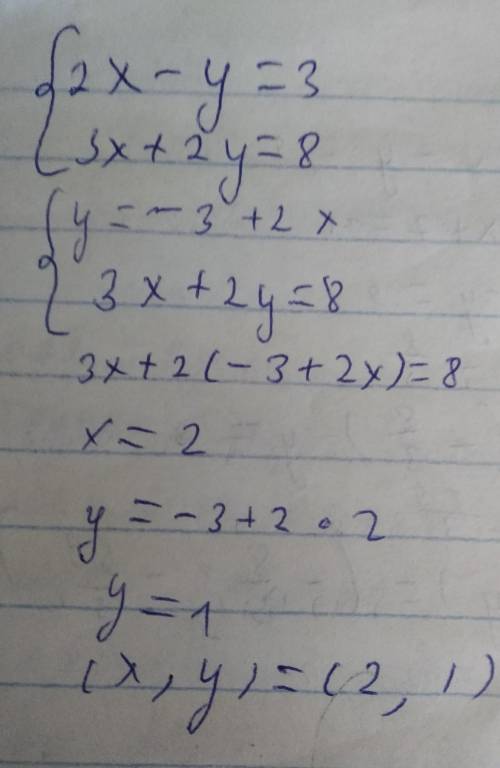 2x - y = 3
3x + 2y = 8
y = -3 + 2x
3x + 2y = 8
3x + 2(-3 + 2x) = 8
x = 2
y = -3 + 2 · 2
y = 1
(x, y) = (2, 1)